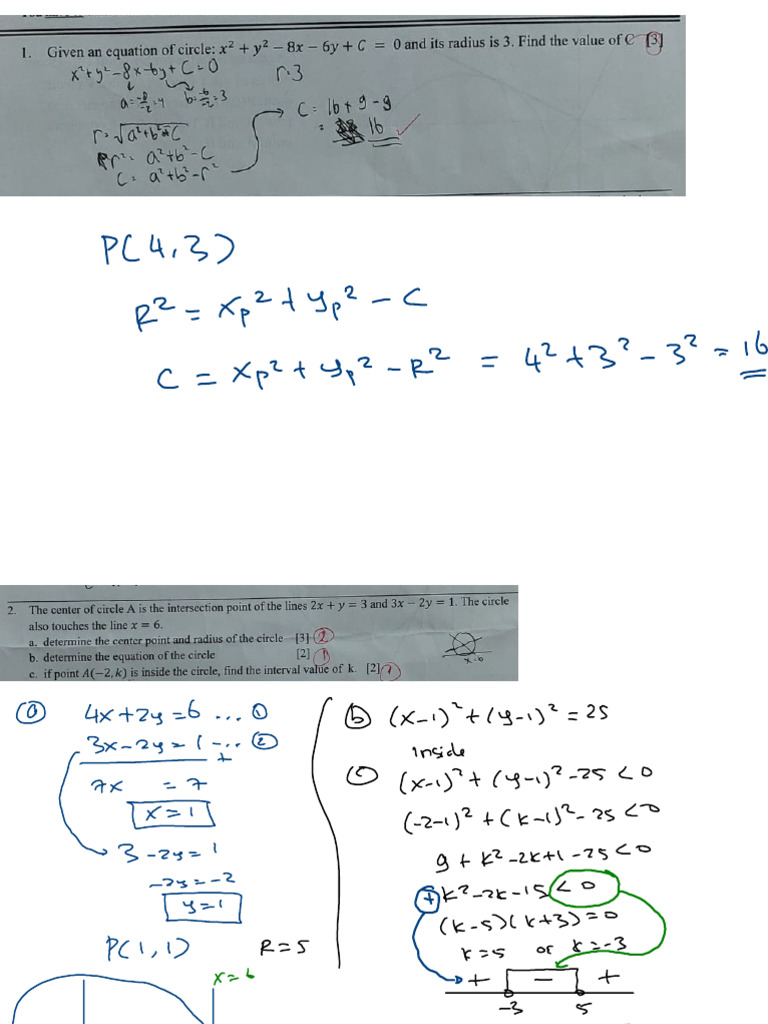 1. Given an equation of circle: x² + y² − 8x − 6y + C = 0 and its radius is 3. Find the value of C [3]
x²+y²−8x−6y+C=0
r=3
a=-8/-2=4 b=-6/-2=3
r=√a²+b²-C
r²= a²+b²−C
C= a²+b²−r²
C= 16+9−9
= 16
P(4,3)
R² = xp² + yp² − C
C = xp² + yp² − R² = 4² + 3² − 3² = 16
2. The center of circle A is the intersection point of the lines 2x + y = 3 and 3x − 2y = 1. The circle
also touches the line x = 6.
a. determine the center point and radius of the circle [3] 2
b. determine the equation of the circle [2] 1
c. if point A(−2, k) is inside the circle, find the interval value of k. [2] 1
x=6
a 4x+2y=6 ... 1
3x−2y=1 ... 2
+
7x = 7
x=1
3−2y=1
−2y=−2
y=1
P(1,1) R=5
x=6
b (x−1)²+(y−1)²=25
inside
c (x−1)²+(y−1)²−25<0
(−2−1)²+(k−1)²−25<0
9+k²−2k+1−25<0
+k²−2k−15<0
(k−5)(k+3)=0
k=5 or k=−3
+ − +
−3 5